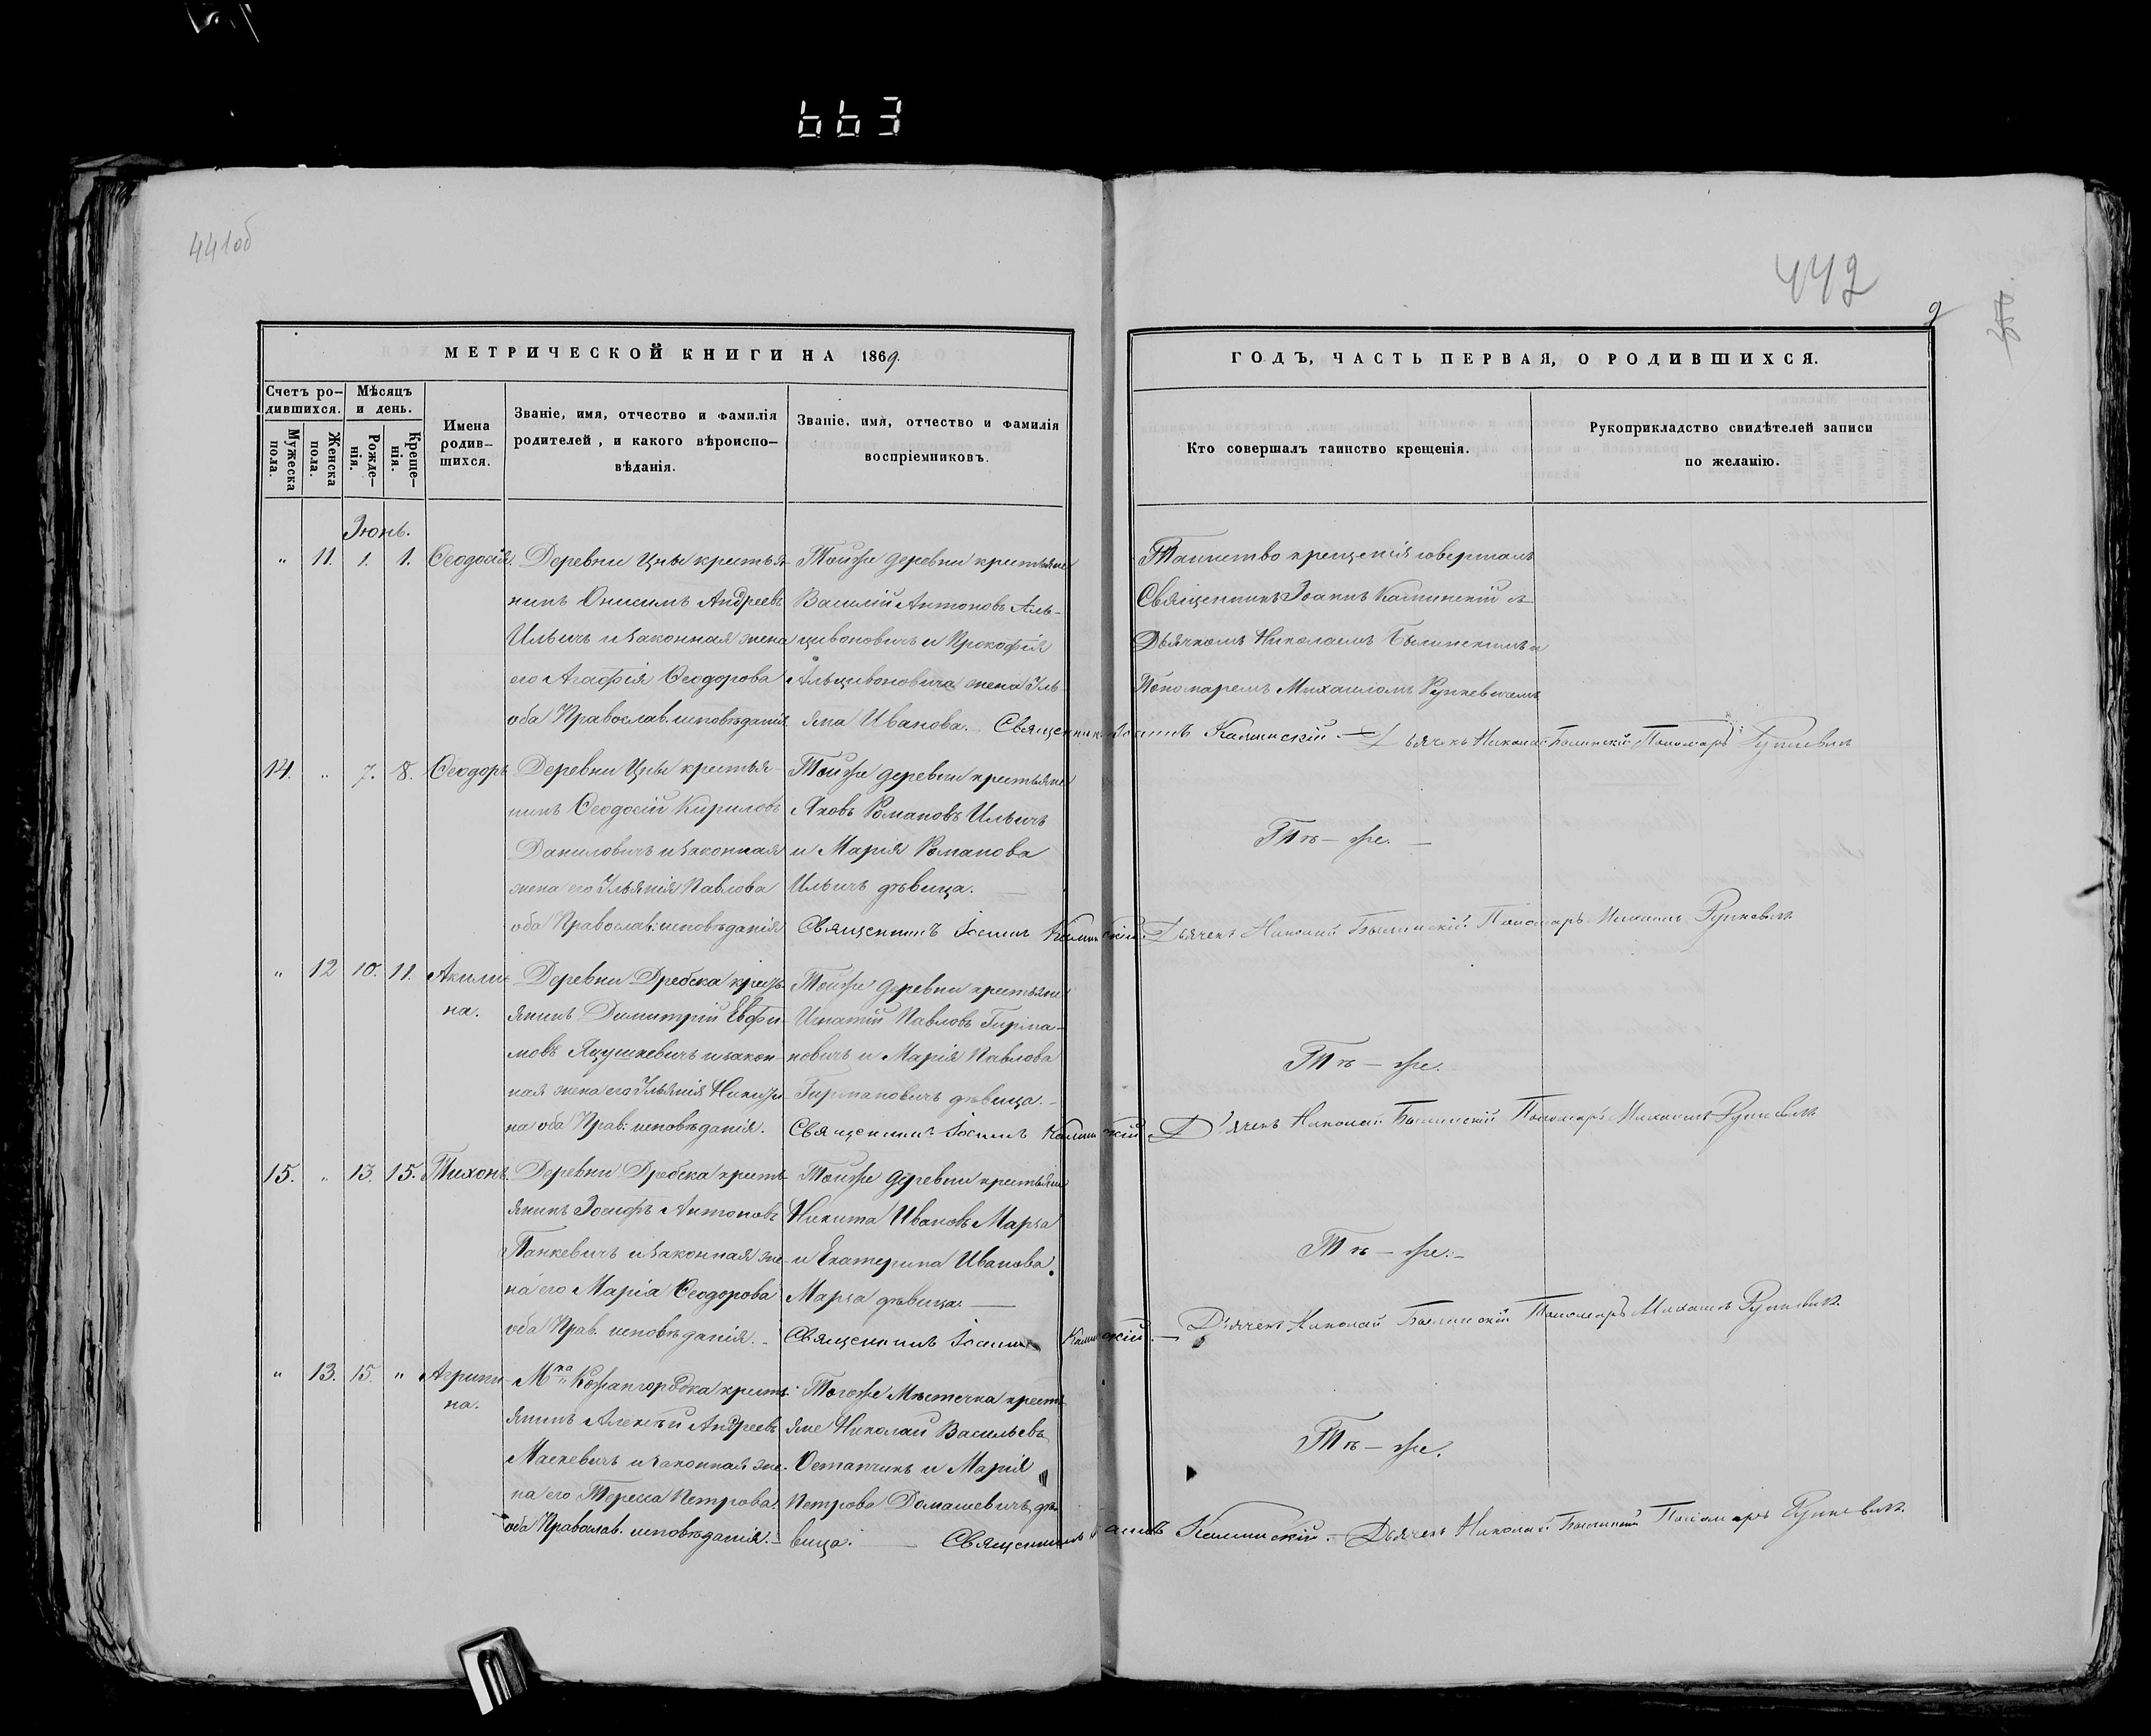 663
441об
442
9
МЕТРИЧЕСКОЙ КНИГИ НА 1869.
ГОДЪ, ЧАСТЬ ПЕРВАЯ, О РОДИВШИХСЯ.
Счетъ ро-
дившихся.
Мѣсяцъ
и день.
Мужеска
пола.
Женска
пола.
Рожде-
нія.
Креще-
нія.
Имена
родив-
шихся.
Званіе, имя, отчество и фамилія
родителей, и какого вѣроиспо-
вѣданія.
Званіе, имя, отчество и фамилія
воспріемниковъ.
Кто совершалъ таинство крещенія.
Рукоприкладство свидѣтелей записи
по желанію.
Іюнь.
" 11. 1. 1. Ѳеодосія.
Деревни Цны крестья-
нинъ Онисимъ Андреевъ
Ильичъ и законная жена
его Агафія Ѳеодорова
оба Православ. исповѣданія
Тойже деревни крестьяне
Василій Антоновъ Аль-
цивоновичъ и Прокофія
Альцивоновича жена Уль-
яна Иванова.
Таинство крещенія совершалъ
Священникъ Іоаннъ Калинскій съ
Дьячкомъ Николаемъ Былинскимъ и
Пономаремъ Михаиломъ Рункевичемъ
Священникъ Іоаннъ Калинскій. Дьячекъ Николай Былинскій Пономарь Рункевичъ
14. " 7. 8. Ѳеодоръ
Деревни Цны крестья-
нинъ Ѳеодосій Кириловъ
Даниловичъ и законная
жена его Ульянія Павлова
оба Православ: исповѣданія
Тойже деревни крестьяне
Яковъ Романовъ Ильичъ
и Марія Романова
Ильичъ дѣвица.
Тѣ-же.
Священникъ Іоаннъ Калинскій. Дьячекъ Николай Былинскій. Пономарь Михаилъ Рункевичъ
" 12 10. 11. Акили-
на.
Деревни Дребска крест-
янинъ Димитрій Евфи-
мовъ Яцушкевичъ и закон-
ная жена его Ульянія
на оба Прав: исповѣданія.
Тойже деревни крестьяне
Игнатій Павловъ Гирма-
новичъ и Марія Павлова
Гирмановичъ дѣвица.
Тѣ-же.
Священникъ Іоаннъ Калинскій Дьячекъ Николай Былинскій Пономарь Михаилъ Рункевичъ
15. " 13. 15. Тихонъ.
Деревни Дребска кресть-
янинъ Іосифъ Антоновъ
Панкевичъ и законная же-
на его Марія Ѳеодорова
оба Прав. исповѣданія.
Тойже деревни крестьяне
Никита Ивановъ Марза
и Екатерина Иванова
Марза дѣвица.
Тѣ-же.
Священникъ Іоаннъ Калинскій. Дьячекъ Николай Былинскій Пономарь Михаилъ Рункевичъ.
" 13. 15. " Агрипи-
на.
Мка Кожангородка кресть-
янинъ Алексѣй Андреевъ
Маскевичъ и законная же-
на его Тереса Петрова
оба Православ. исповѣданія.
Тогоже Мѣстечка кресть-
яне Николай Васильевъ
Остапчикъ и Марія
Петрова Домашевичъ дѣ-
вица.
Тѣ-же.
Священникъ Іоаннъ Калинскій. Дьячекъ Николай Былинскій Пономарь Рункевичъ.